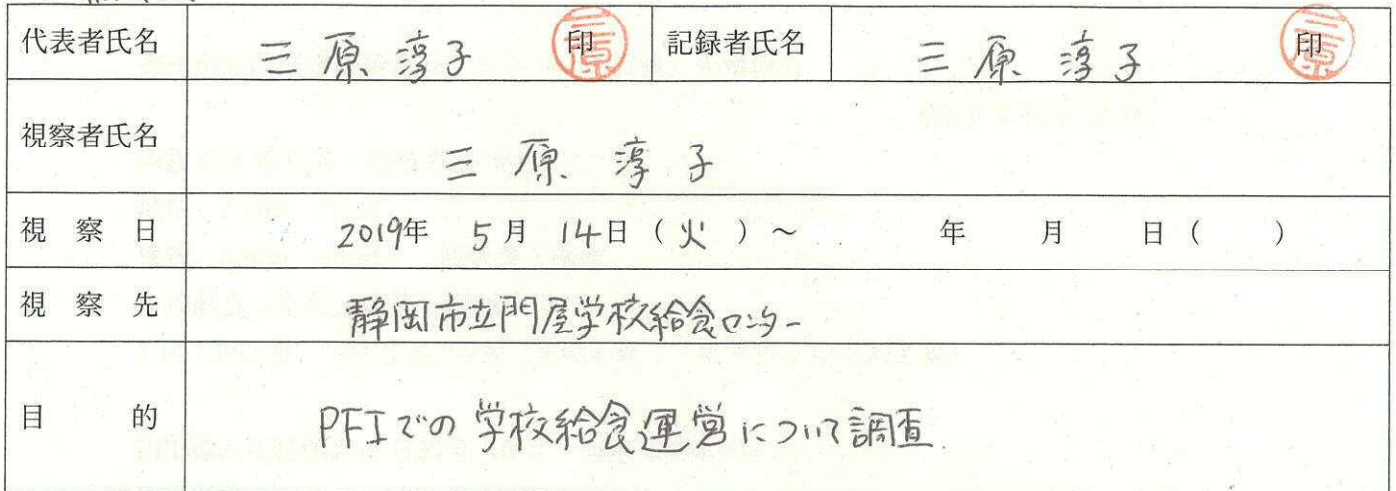 代表者氏名 三原淳子 印 記録者氏名 三原淳子 印
視察者氏名 三原淳子
視察日 2019年 5月 14日 (火) ~ 年 月 日 ( )
視察先 静岡市立門屋学校給食センター
目的 PFIでの学校給食運営について調査